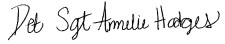 Det Sgt Amelie Hodges